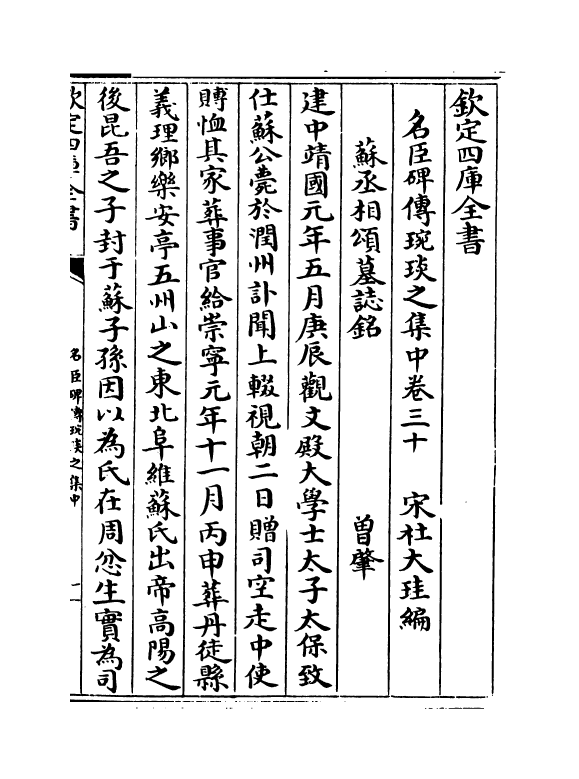 欽定四庫全書
名臣碑傳琬琰之集中卷三十　宋杜大珪編
蘇丞相頌墓誌銘　曾肇
建中靖國元年五月庚辰觀文殿大學士太子太保致
仕蘇公薨於潤州訃聞上輟視朝二日贈司空走中使
賻恤其家葬事官給崇寧元年十一月丙申葬丹徒縣
義理鄉樂安亭五州山之東北阜維蘇氏出帝高陽之
後昆吾之子封于蘇子孫因以為氏在周忿生實為司
欽定四庫全書
名臣碑傳琬琰之集中